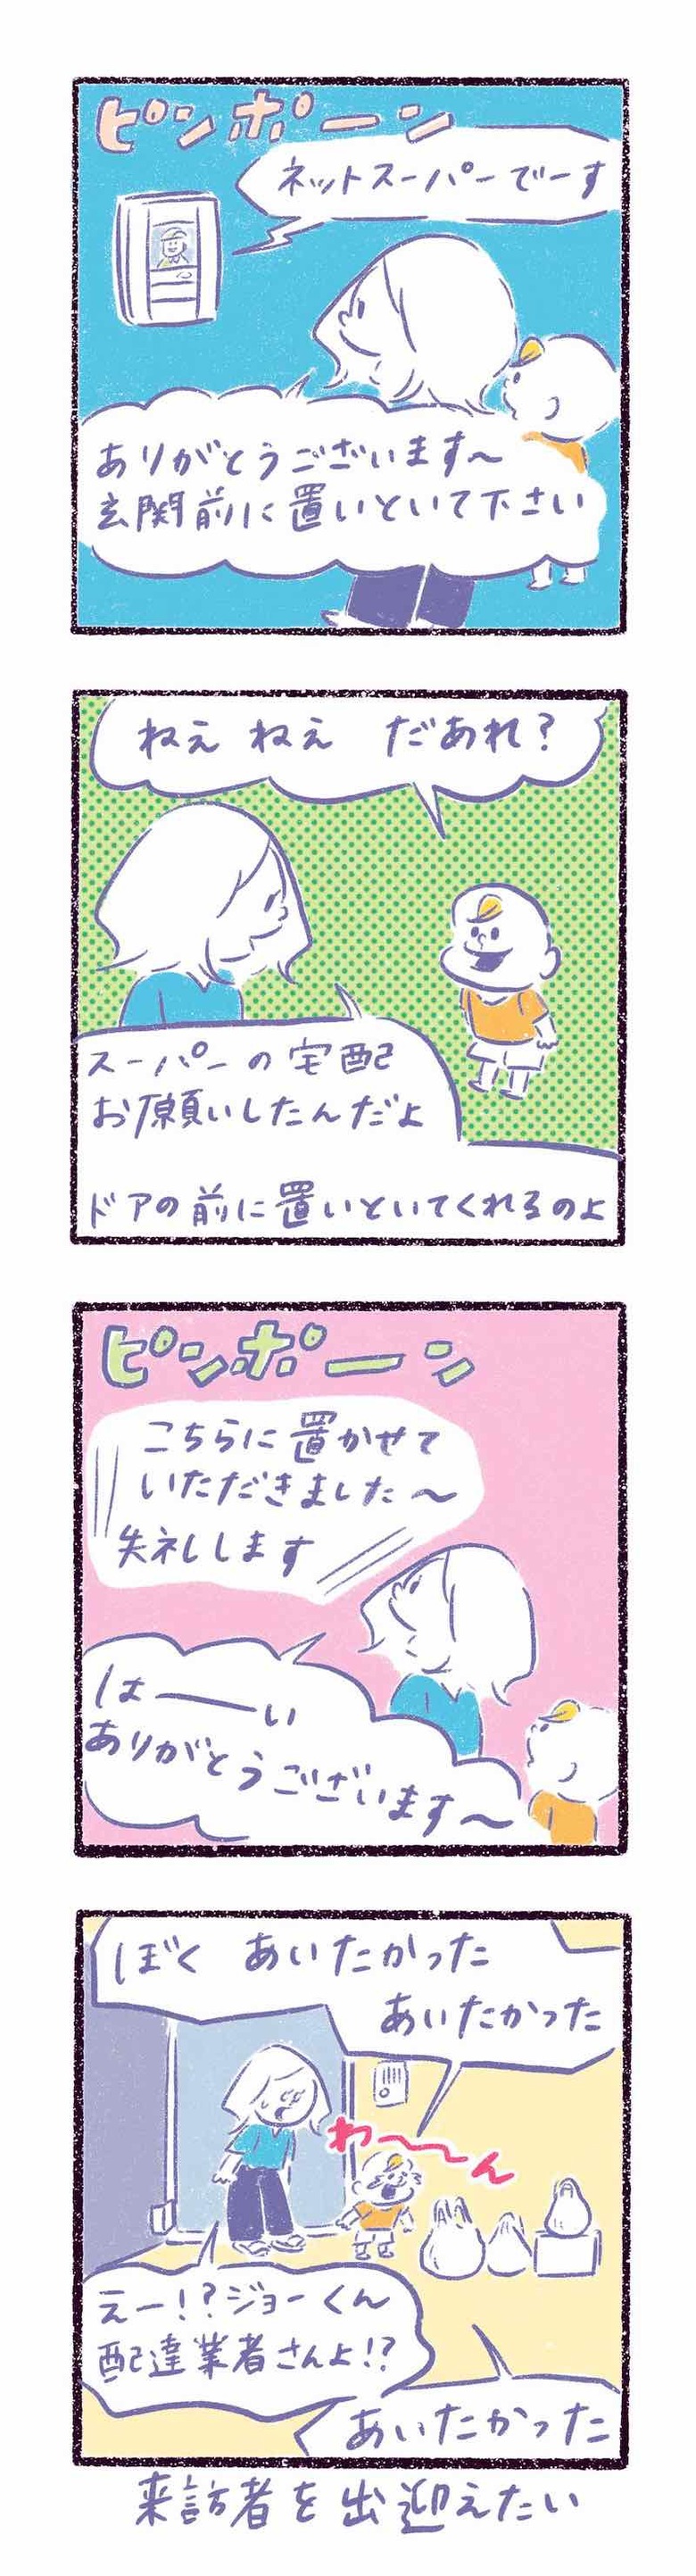 ピンポーン
ネットスーパーでーす
ありがとうございます〜
玄関前に置いといて下さい
ねぇ ねぇ だあれ?
スーパーの宅配
お願いしたんだよ
ドアの前に置いといてくれるのよ
ピンポーン
こちらに置かせて
いただきました〜
失礼します
はーーい
ありがとうございます〜
ぼく あいたかった
あいたかった
わ〜〜ん
えー!?ジョーくん
配達業者さんよ!?
あいたかった
来訪者を出迎えたい